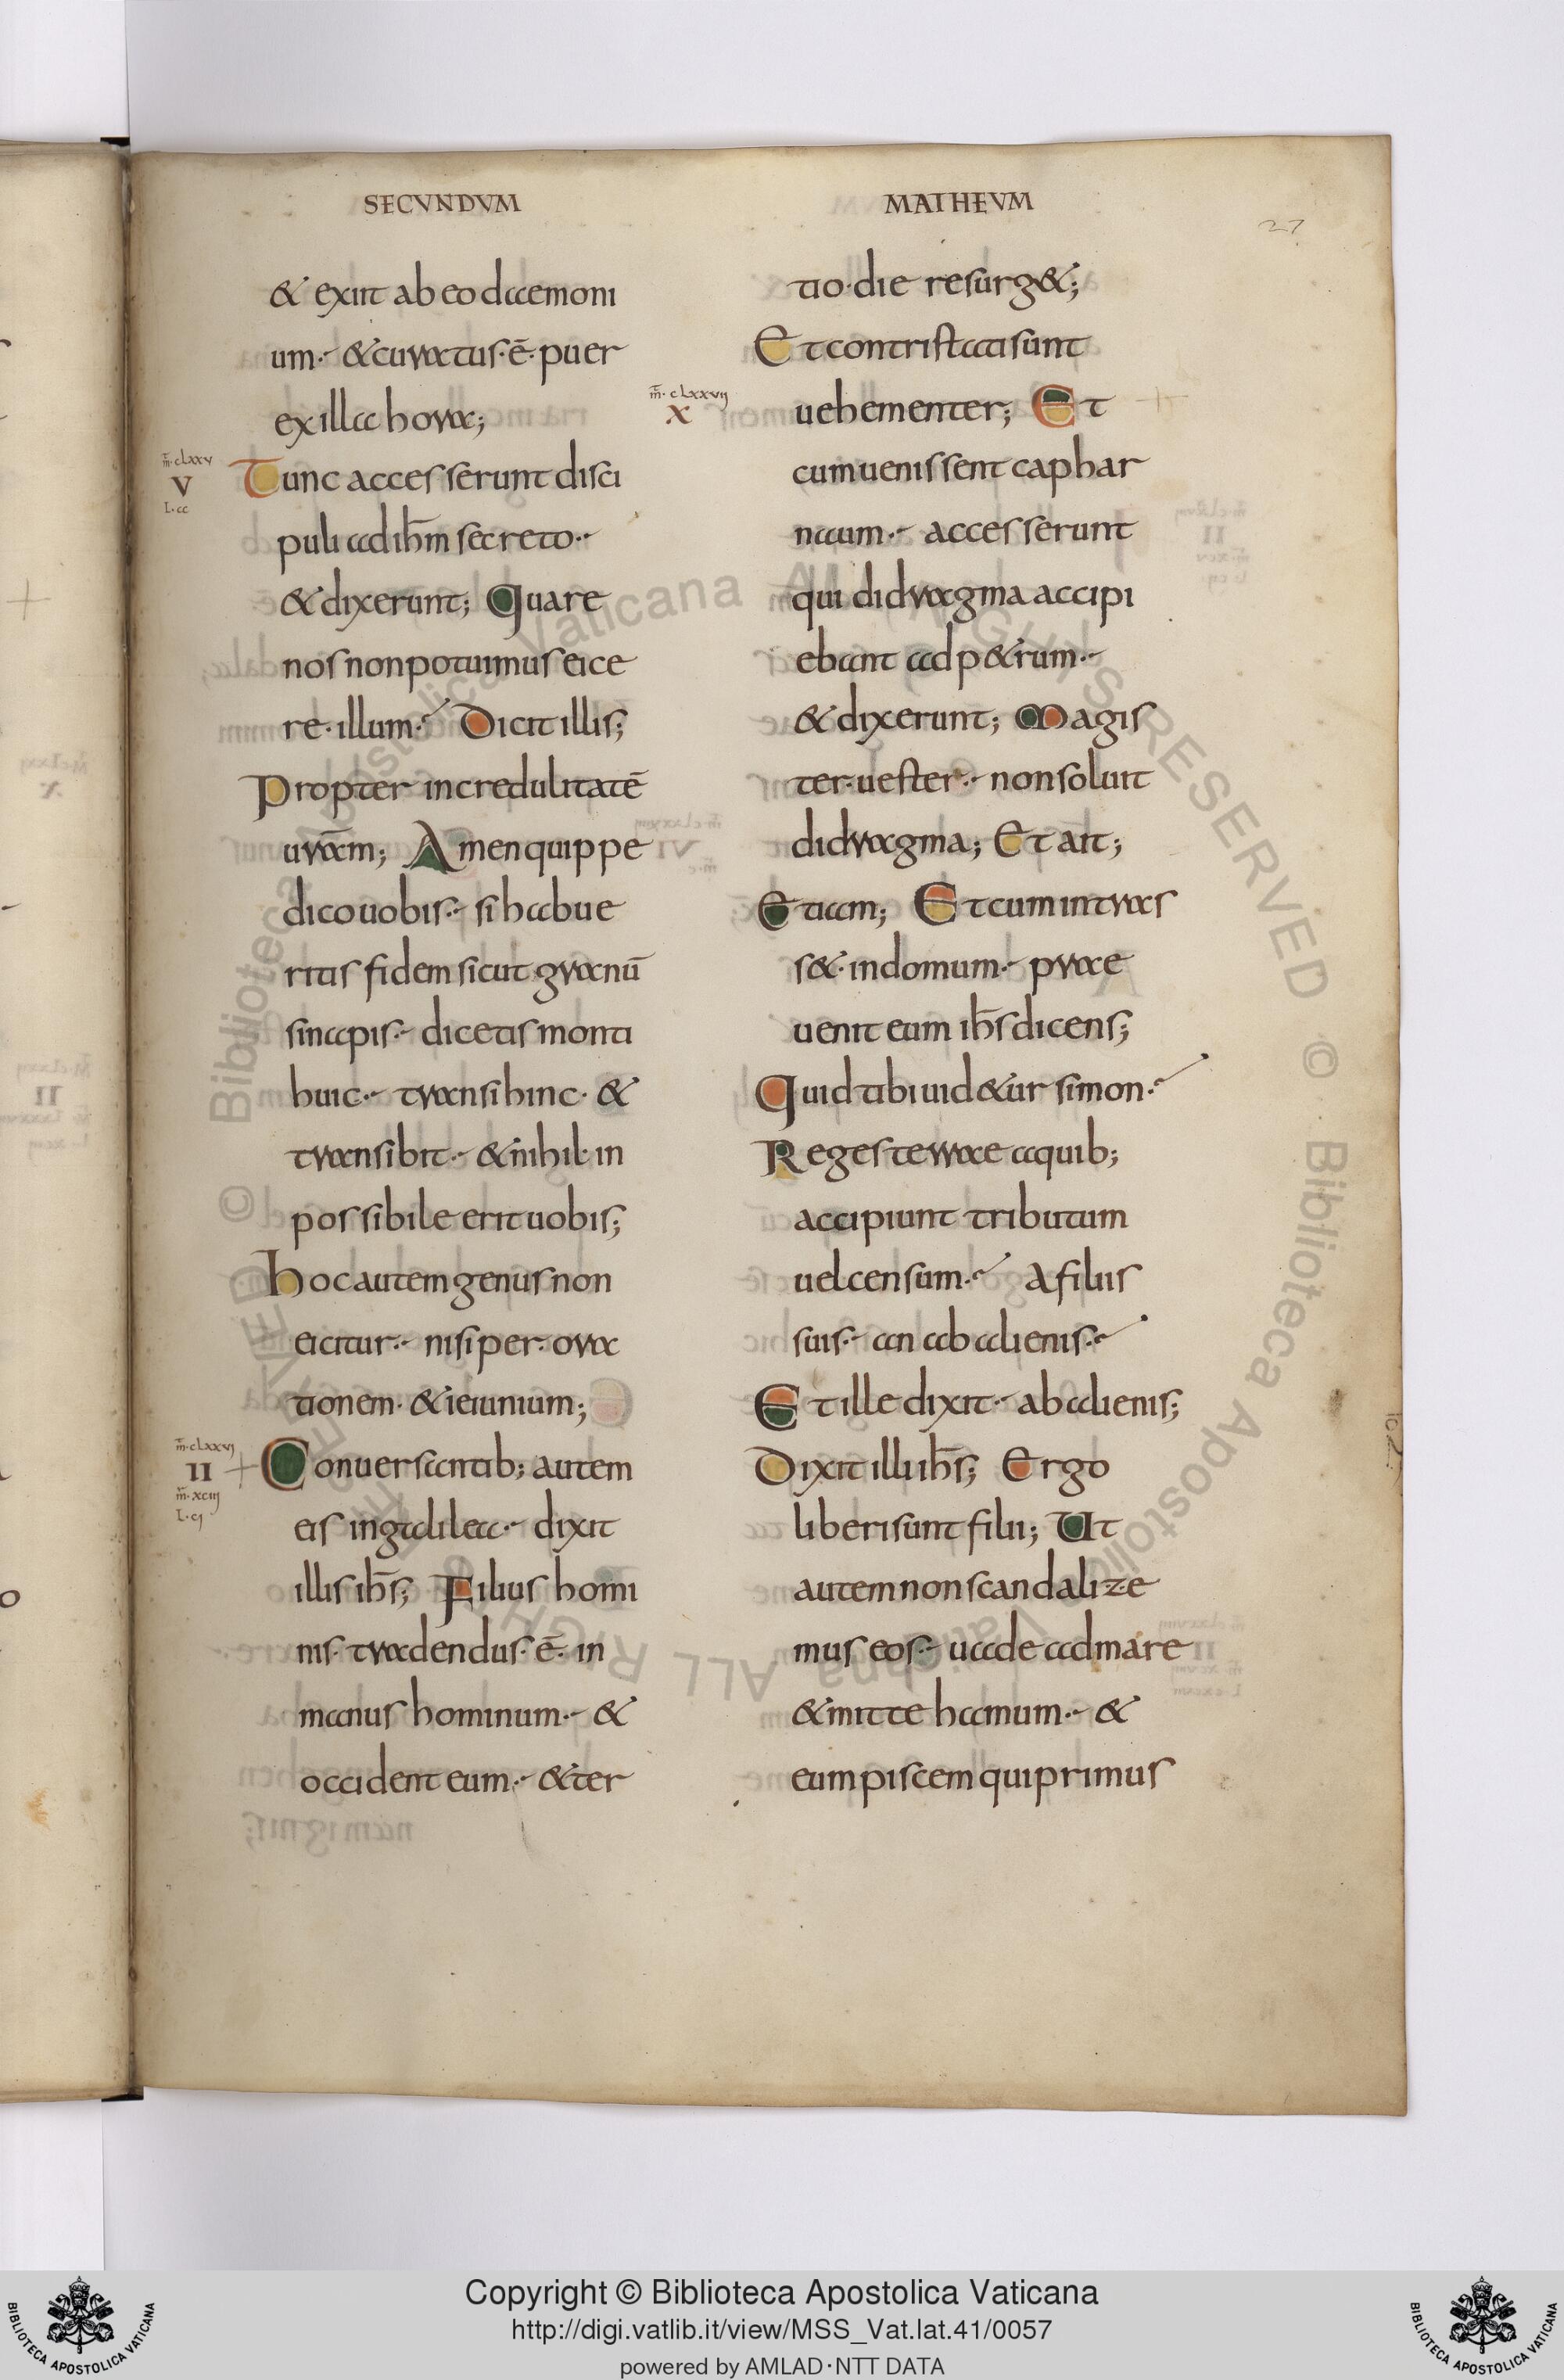 SECUNDUM
& exiit ab eo daemoni
um·- & curatus· ē· puer
ex illa hora;
m̄· clxxv
V
L· cc
Tunc accesserunt disci
puli ad ih̄m secreto·-
& dixerunt; Quare
nos non potuimus eice
re· illum·- Dicit illis;
Propter incredulitatē
urām; Amen quippe
dico uobis·- si habue
ritis fidem sicut granū
sinapis·- dicetis monti
huic·- transi hinc· &
transibit·- & nihil· in
possibile erit uobis;
hoc autem genus non
eicitur·- nisi per· ora
tionem· & ieiunium;
m̄· clxxvj
II
m̄· xciij
L· cj
Conuersantib; autem
eis in galilaea·- dixit
illis ih̄s; Filius homi
nis· tradendus· ē· in
manus hominum·- &
occident eum·- & ter
MATHEUM
27
tio· die resurg&;
Et contristati sunt
m̄· clxxvij
X
uehementer; Et
cum uenissent caphar
naum·- accesserunt
qui didragma accipi
ebant ad p&rum·-
& dixerunt; Magis
ter· uester·- non soluit
didragma; Et ait;
Etiam; Et cum intras
s&· in domum·- prae
uenit eum ih̄s dicens;
Quid tibi uid&ur simon·-
Reges terrae a quib;
accipiunt tributum
uel censum·- A filiis
suis·- an ab alienis·-
Et ille dixit·- ab alienis;
Dixit illi ih̄s; Ergo
liberi sunt filii; Ut
autem non scandalize
mus eos·- uade ad mare
& mitte hamum·- &
eum piscem qui primus
Copyright © Biblioteca Apostolica Vaticana
http://digi.vatlib.it/view/MSS_Vat.lat.41/0057
powered by AMLAD·NTT DATA
BIBLIOTECA APOSTOLICA VATICANA
BIBLIOTECA APOSTOLICA VATICANA
© Biblioteca Apostolica Vaticana ALL RIGHTS RESERVED © Biblioteca Apostolica Vaticana ALL RIGHTS RESERVED